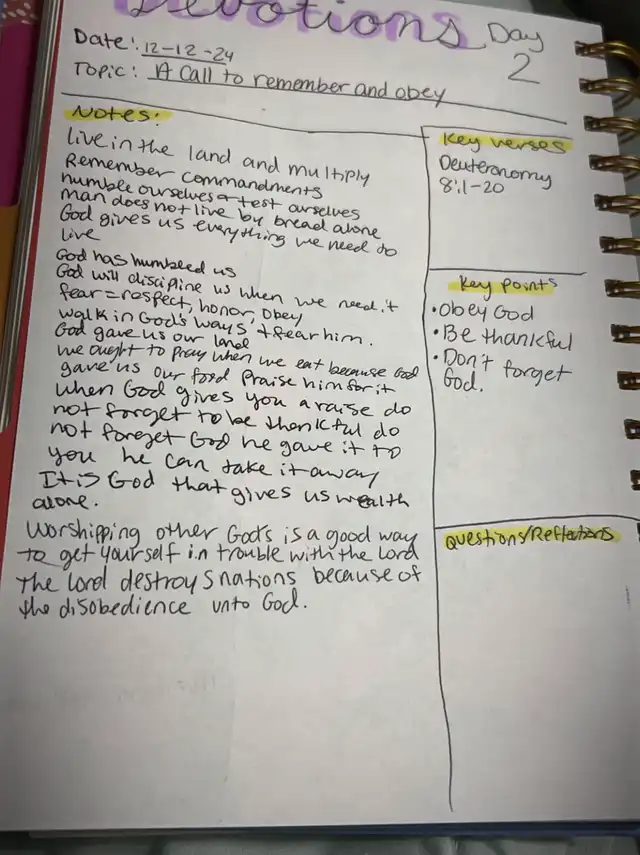 Devotions Day 2
Date: 12-12-24
Topic: A Call to remember and obey
Notes:
live in the land and multiply
Remember commandments
humble ourselves + test ourselves
man does not live by bread alone
God gives us everything we need to
live
God has humbled us
God will discipline us when we need it
fear = respect, honor, obey
walk in God's ways + fear him.
God gave us our land
we ought to pray when we eat because God
gave us our food Praise him for it
when God gives you a raise do
not forget to be thankful do
not forget God he gave it to
you he can take it away
It is God that gives us wealth
alone.
Worshipping other God's is a good way
to get yourself in trouble with the Lord
The Lord destroys nations because of
the disobedience unto God.
Key verses
Deuteronomy
8:1-20
Key points
• Obey God
• Be thankful
• Don't forget
God.
Questions/Reflections